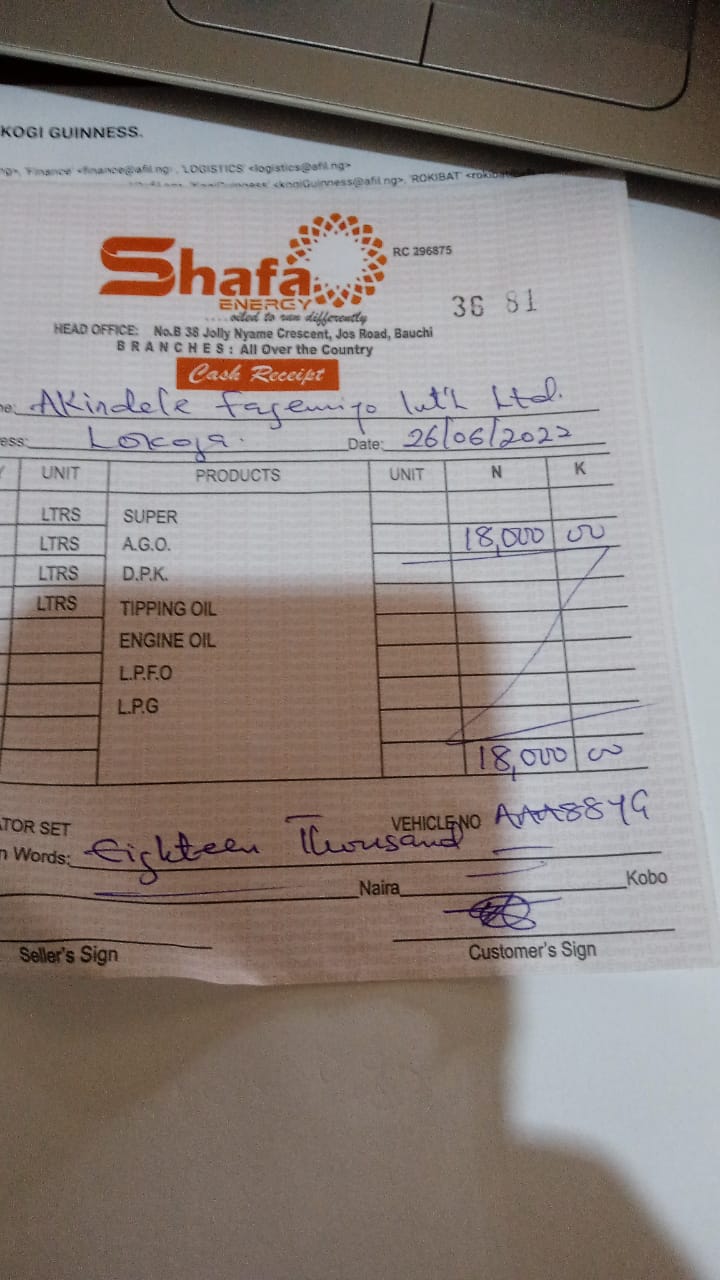 KOGI GUINNESS.
ng>, 'Finance' <finance@afil.ng>, 'LOGISTICS' <logistics@afil.ng>
<kogiGuinness@afil.ng>, 'ROKIBAT'
Shafa
ENERGY
RC 296875
....oiled to run differently
36 81
HEAD OFFICE: No.B 38 Jolly Nyame Crescent, Jos Road, Bauchi
BRANCHES: All Over the Country
Cash Receipt
me: Akindele Fagemiyo Int'l Ltd.
ess: Lokoja. Date: 26/06/2022
Y UNIT PRODUCTS UNIT N K
LTRS SUPER
LTRS A.G.O. 18,000 00
LTRS D.P.K.
LTRS TIPPING OIL
ENGINE OIL
L.P.F.O
L.P.G
18,000 00
ATOR SET VEHICLE NO AAA887YG
n Words: Eighteen Thousand
Naira Kobo
Seller's Sign Customer's Sign